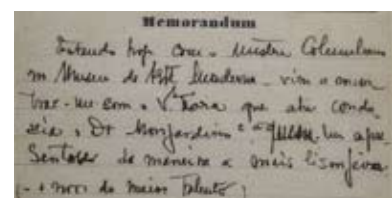 Memorandum
Estando hoje com o Mestre Columbano
no Museu de Arte Moderna, vim a encon
trar-me com o V. Lara que ahi condu
zia o Dr Monjardino a quem me apre
sentou da maneira a mais lisongeira
(- o novo de maior talento)